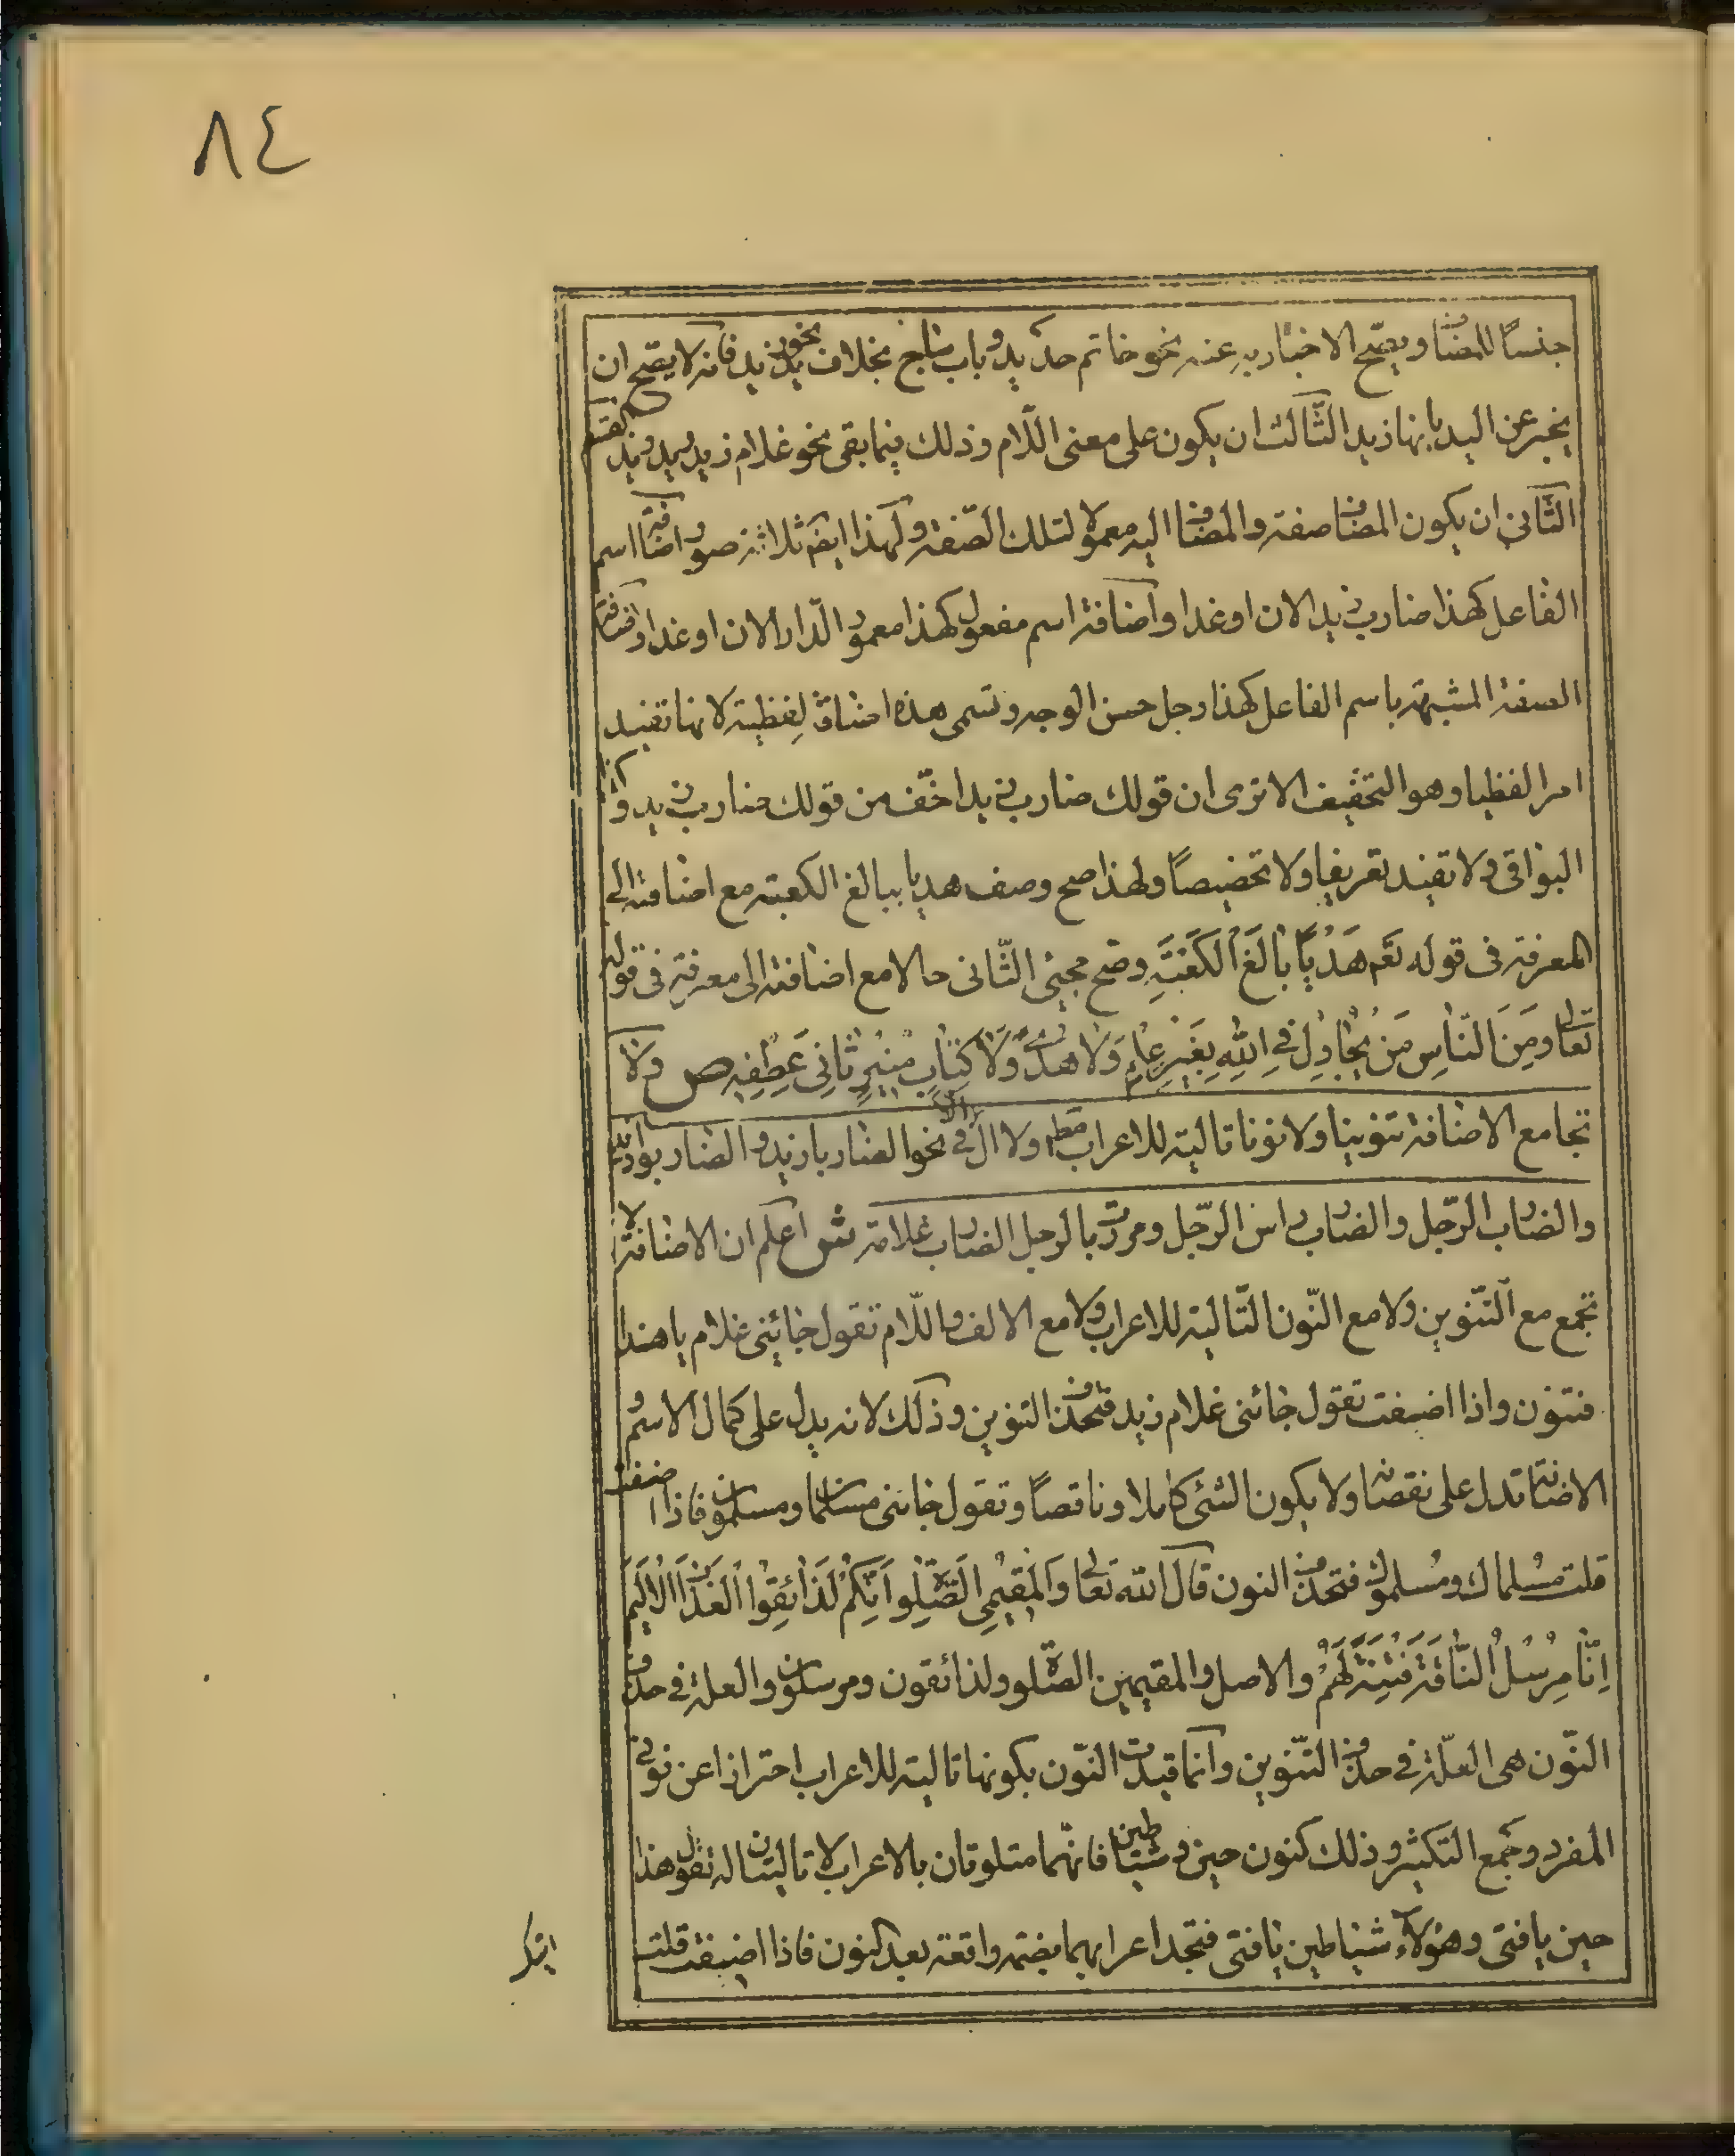 ٨٤
جنسًا للمضاف ويصّح الاخبار به عنه نحو خاتم حديد وباب ساج بخلاف نحو يد زيد فانه لا يصّح ان
يخبر عن اليد بانها زيد الثّالث ان يكون على معنى اللّام وذلك فيما بقى نحو غلام زيد ويد زيد القسم
الثّانى ان يكون المضاف صفة والمضاف اليه معمولا لتلك الصّفة ولهذا ايضم ثلاثة صور اضافة اسم
الفاعل كهذا ضارب زيد الان او غدا واضافة اسم مفعول كهذا معمور الدّار الان او غدا واضافة
الصفة المشبهة باسم الفاعل كهذا رجل حسن الوجه وتسمى هذه اضافة لفظية لانها تفيد
امرا لفظيا وهو التخفيف الا ترى ان قولك ضارب زيد اخّف من قولك ضارب زيد وكذا
البواقى ولا تفيد تعريفا ولا تخصيصًا ولهذا صح وصف هديا ببالغ الكعبة مع اضافته الى
المعرفة فى قوله تعم هَدْيًا بَالِغَ الْكَعْبَةِ وصّح مجيئ الثّانى حالا مع اضافته الى معرفة فى قوله
تعالى وَمِنَ النّاسِ مَنْ يُجَادِلُ فِى اللّهِ بِغَيْرِ عِلْمٍ وَلَا هُدًى وَلَا كِتَابٍ مُنِيرٍ ثَانِىَ عِطْفِهِ ص ولا
تجامع الاضافة تنوينا ولا نونا تالية للاعراب مطم ولا ال الّا فى نحو الضاربا زيد و الضاربو زيد
والضارب الرّجل والضارب راس الرّجل ومررت بالرجل الضارب غلامه ش اعلم ان الاضافة لا
تجمع مع التّنوين ولا مع النّون التّالية للاعراب ولا مع الالف واللّام تقول جائنى غلام يا هذا
فتنون واذا اضيفت تقول جائنى غلام زيد فتحذف التنوين وذلك لانه يدل على كمال الاسم و
الاضافة تدل على نقصانه ولا يكون الشئ كاملا وناقصًا وتقول جائنى مسلمان ومسلمون فاذا اضفت
قلت مسلماك ومسلموك فتحذف النون قال الله تعالى وَالْمُقِيمِى الصَّلوةِ اِنَّكُمْ لَذَائِقُوا الْعَذَابِ الْاَلِيمِ
اِنَّا مُرْسِلُوا النَّاقَةِ فِتْنَةً لَهُمْ والاصل والمقيمين الصّلوة ولذائقون ومرسلون والعلة فى حذف
النّون هى العلّة فى حذف التّنوين وانّما قيدت النّون بكونها تالية للاعراب احترازا عن نونى
المفرد وجمع التكثير وذلك كنون حين وشياطين فانّهما متلوتان بالاعراب لا تاليتان له تقول هذا
حين يا فتى وهؤلاء شياطين يا فتى فتجد اعرابهما بضمة واقعة بعد كنون فاذا اضيفت قلت
اتيك